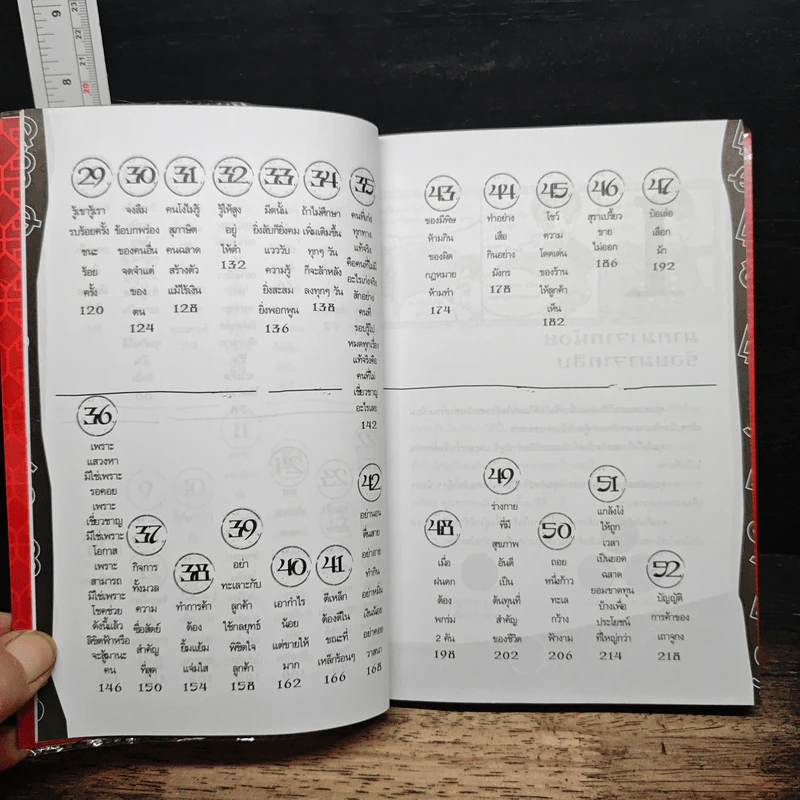 29
รู้เขารู้เรา
รบร้อยครั้ง
ชนะ
ร้อย
ครั้ง
120
30
จงลืม
ข้อบกพร่อง
ของคนอื่น
จดจำแต่
ของ
ตน
124
31
คนโง่ไม่รู้
สุภาษิต
คนฉลาด
สร้างตัว
แม้ไร้เงิน
128
32
รู้ให้สูง
อยู่
ให้ต่ำ
132
33
มีดนั้น
ยิ่งลับก็ยิ่งคม
แวววับ
ความรู้
ยิ่งสะสม
ยิ่งพอกพูน
136
34
ถ้าไม่ศึกษา
เพิ่มเติมขึ้น
ทุกๆ วัน
ก็จะล้าหลัง
ลงทุกๆ วัน
138
35
คนที่เก่ง
ทุกทาง
แท้จริง
คือคนที่ไม่มี
อะไรเก่งจริง
สักอย่าง
คนที่
รอบรู้ไป
หมดทุกเรื่อง
แท้จริงคือ
คนที่ไม่
เชี่ยวชาญ
อะไรเลย
142
36
เพราะ
แสวงหา
มิใช่เพราะ
รอคอย
เพราะ
เชี่ยวชาญ
มิใช่เพราะ
โอกาส
เพราะ
สามารถ
มิใช่เพราะ
โชคช่วย
ดังนี้แล้ว
ลิขิตฟ้าหรือ
จะสู้มานะ
คน
146
37
กิจการ
ทั้งมวล
ความ
ซื่อสัตย์
สำคัญ
ที่สุด
150
38
ทำการค้า
ต้อง
ยิ้มแย้ม
แจ่มใส
154
39
อย่า
ทะเลาะกับ
ลูกค้า
ใช้กลยุทธ์
พิชิตใจ
ลูกค้า
158
40
เอากำไร
น้อย
แต่ขายให้
มาก
162
41
ตีเหล็ก
ต้องตีใน
ขณะที่
เหล็กร้อนๆ
166
42
อย่านอน
ตื่นสาย
อย่าอาย
ทำกิน
อย่าหมิ่น
เงินน้อย
อย่าคอย
วาสนา
168
43
ของมีพิษ
ห้ามกิน
ของผิด
กฎหมาย
ห้ามทำ
174
44
ทำอย่าง
เสือ
กินอย่าง
มังกร
178
45
โชว์
ความ
โดดเด่น
ของร้าน
ให้ลูกค้า
เห็น
182
46
สุราเปรี้ยว
ขาย
ไม่ออก
186
47
ป๋อเล่อ
เลือก
ม้า
192
48
เมื่อ
ฝนตก
ต้อง
พกร่ม
2 คัน
198
49
ร่างกาย
ที่มี
สุขภาพ
อันดี
เป็น
ต้นทุนที่
สำคัญ
ของชีวิต
202
50
ถอย
หนึ่งก้าว
ทะเล
กว้าง
ฟ้างาม
206
51
แกล้งโง่
ให้ถูก
เวลา
เป็นยอด
ฉลาด
ยอมขาดทุน
บ้างเพื่อ
ประโยชน์
ที่ใหญ่กว่า
214
52
บัญญัติ
การค้าของ
เถาจูกง
218